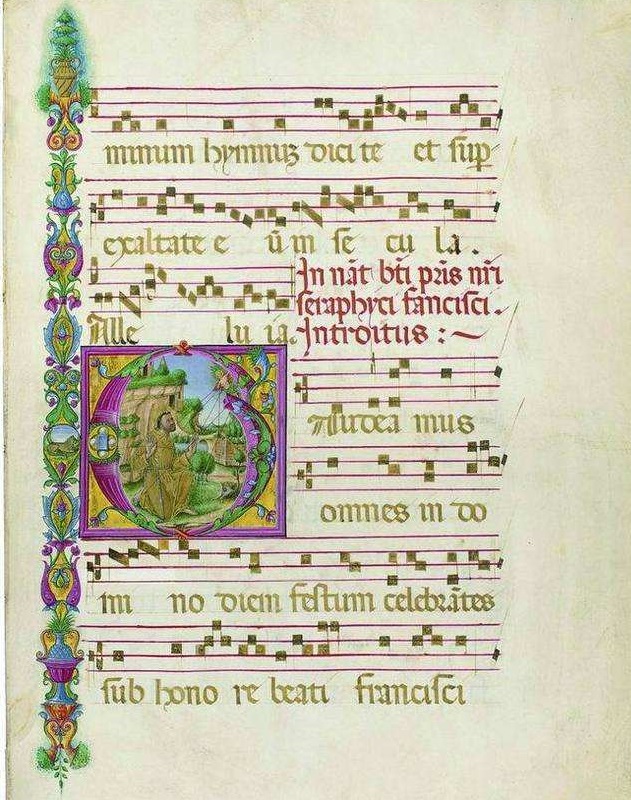 minum hymnuʒ dici te et sup-
exaltate e um in se cu la .
Alle lu ia.
In nat̄ bt̄i p̄ris nr̄i
seraphyci fancisci .
Introitus :~
Audea mus
omnes in do
mi no diem festum celebrātes
sub hono re beati francisci